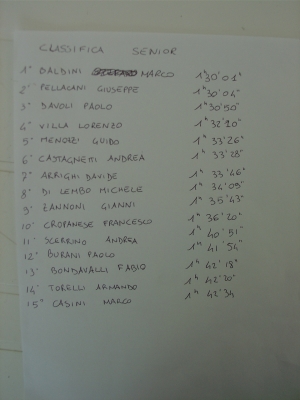 CLASSIFICA SENIOR
1° BALDINI MARCO 1h 30' 01"
2° PELLACANI GIUSEPPE 1h 30' 04"
3° DAVOLI PAOLO 1h 30' 50"
4° VILLA LORENZO 1h 32' 20"
5° MENOZZI GUIDO 1h 33' 26"
6° CASTAGNETTI ANDREA 1h 33' 28"
7° ARRIGHI DAVIDE 1h 33' 46"
8° DI LEMBO MICHELE 1h 34' 09"
9° ZANNONI GIANNI 1h 35' 43"
10° CROPANESE FRANCESCO 1h 36' 20"
11° SCERRINO ANDREA 1h 40' 51"
12° BURANI PAOLO 1h 41' 54"
13° BONDAVALLI FABIO 1h 42' 18"
14° TORELLI ARMANDO 1h 42' 20"
15° CASINI MARCO 1h 42' 34